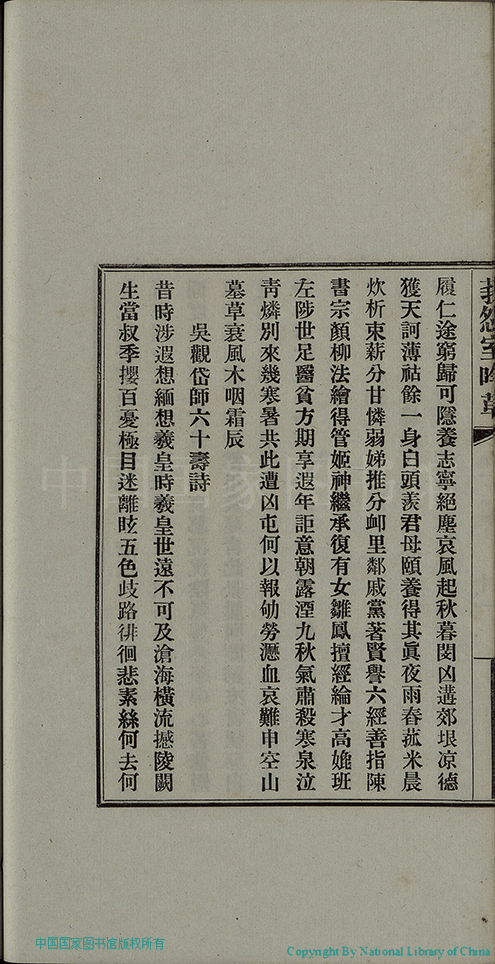 履仁途窮歸可隱養志寧絕塵哀風起秋暮閔凶遘郊垠凉德
獲天訶薄祜餘一身白頭羨君母頤養得其眞夜雨舂菰米晨
炊析束薪分甘憐弱娣推分卹里鄰戚黨著賢譽六經善指陳
書宗顏柳法繪得管姬神繼承復有女雛鳳擅經綸才高娩班
左陟世足醫貧方期享遐年詎意朝露湮九秋氣肅殺寒泉泣
靑燐別來幾寒暑共此遭凶屯何以報劬勞灑血哀難申空山
墓草衰風木咽霜辰
吳觀岱師六十壽詩
昔時涉遐想緬想羲皇時羲皇世遠不可及滄海橫流撼陵闕
生當叔季攖百憂極目迷離眩五色歧路徘徊悲素絲何去何
中国国家图书馆版权所有
Copyright By National Library of China